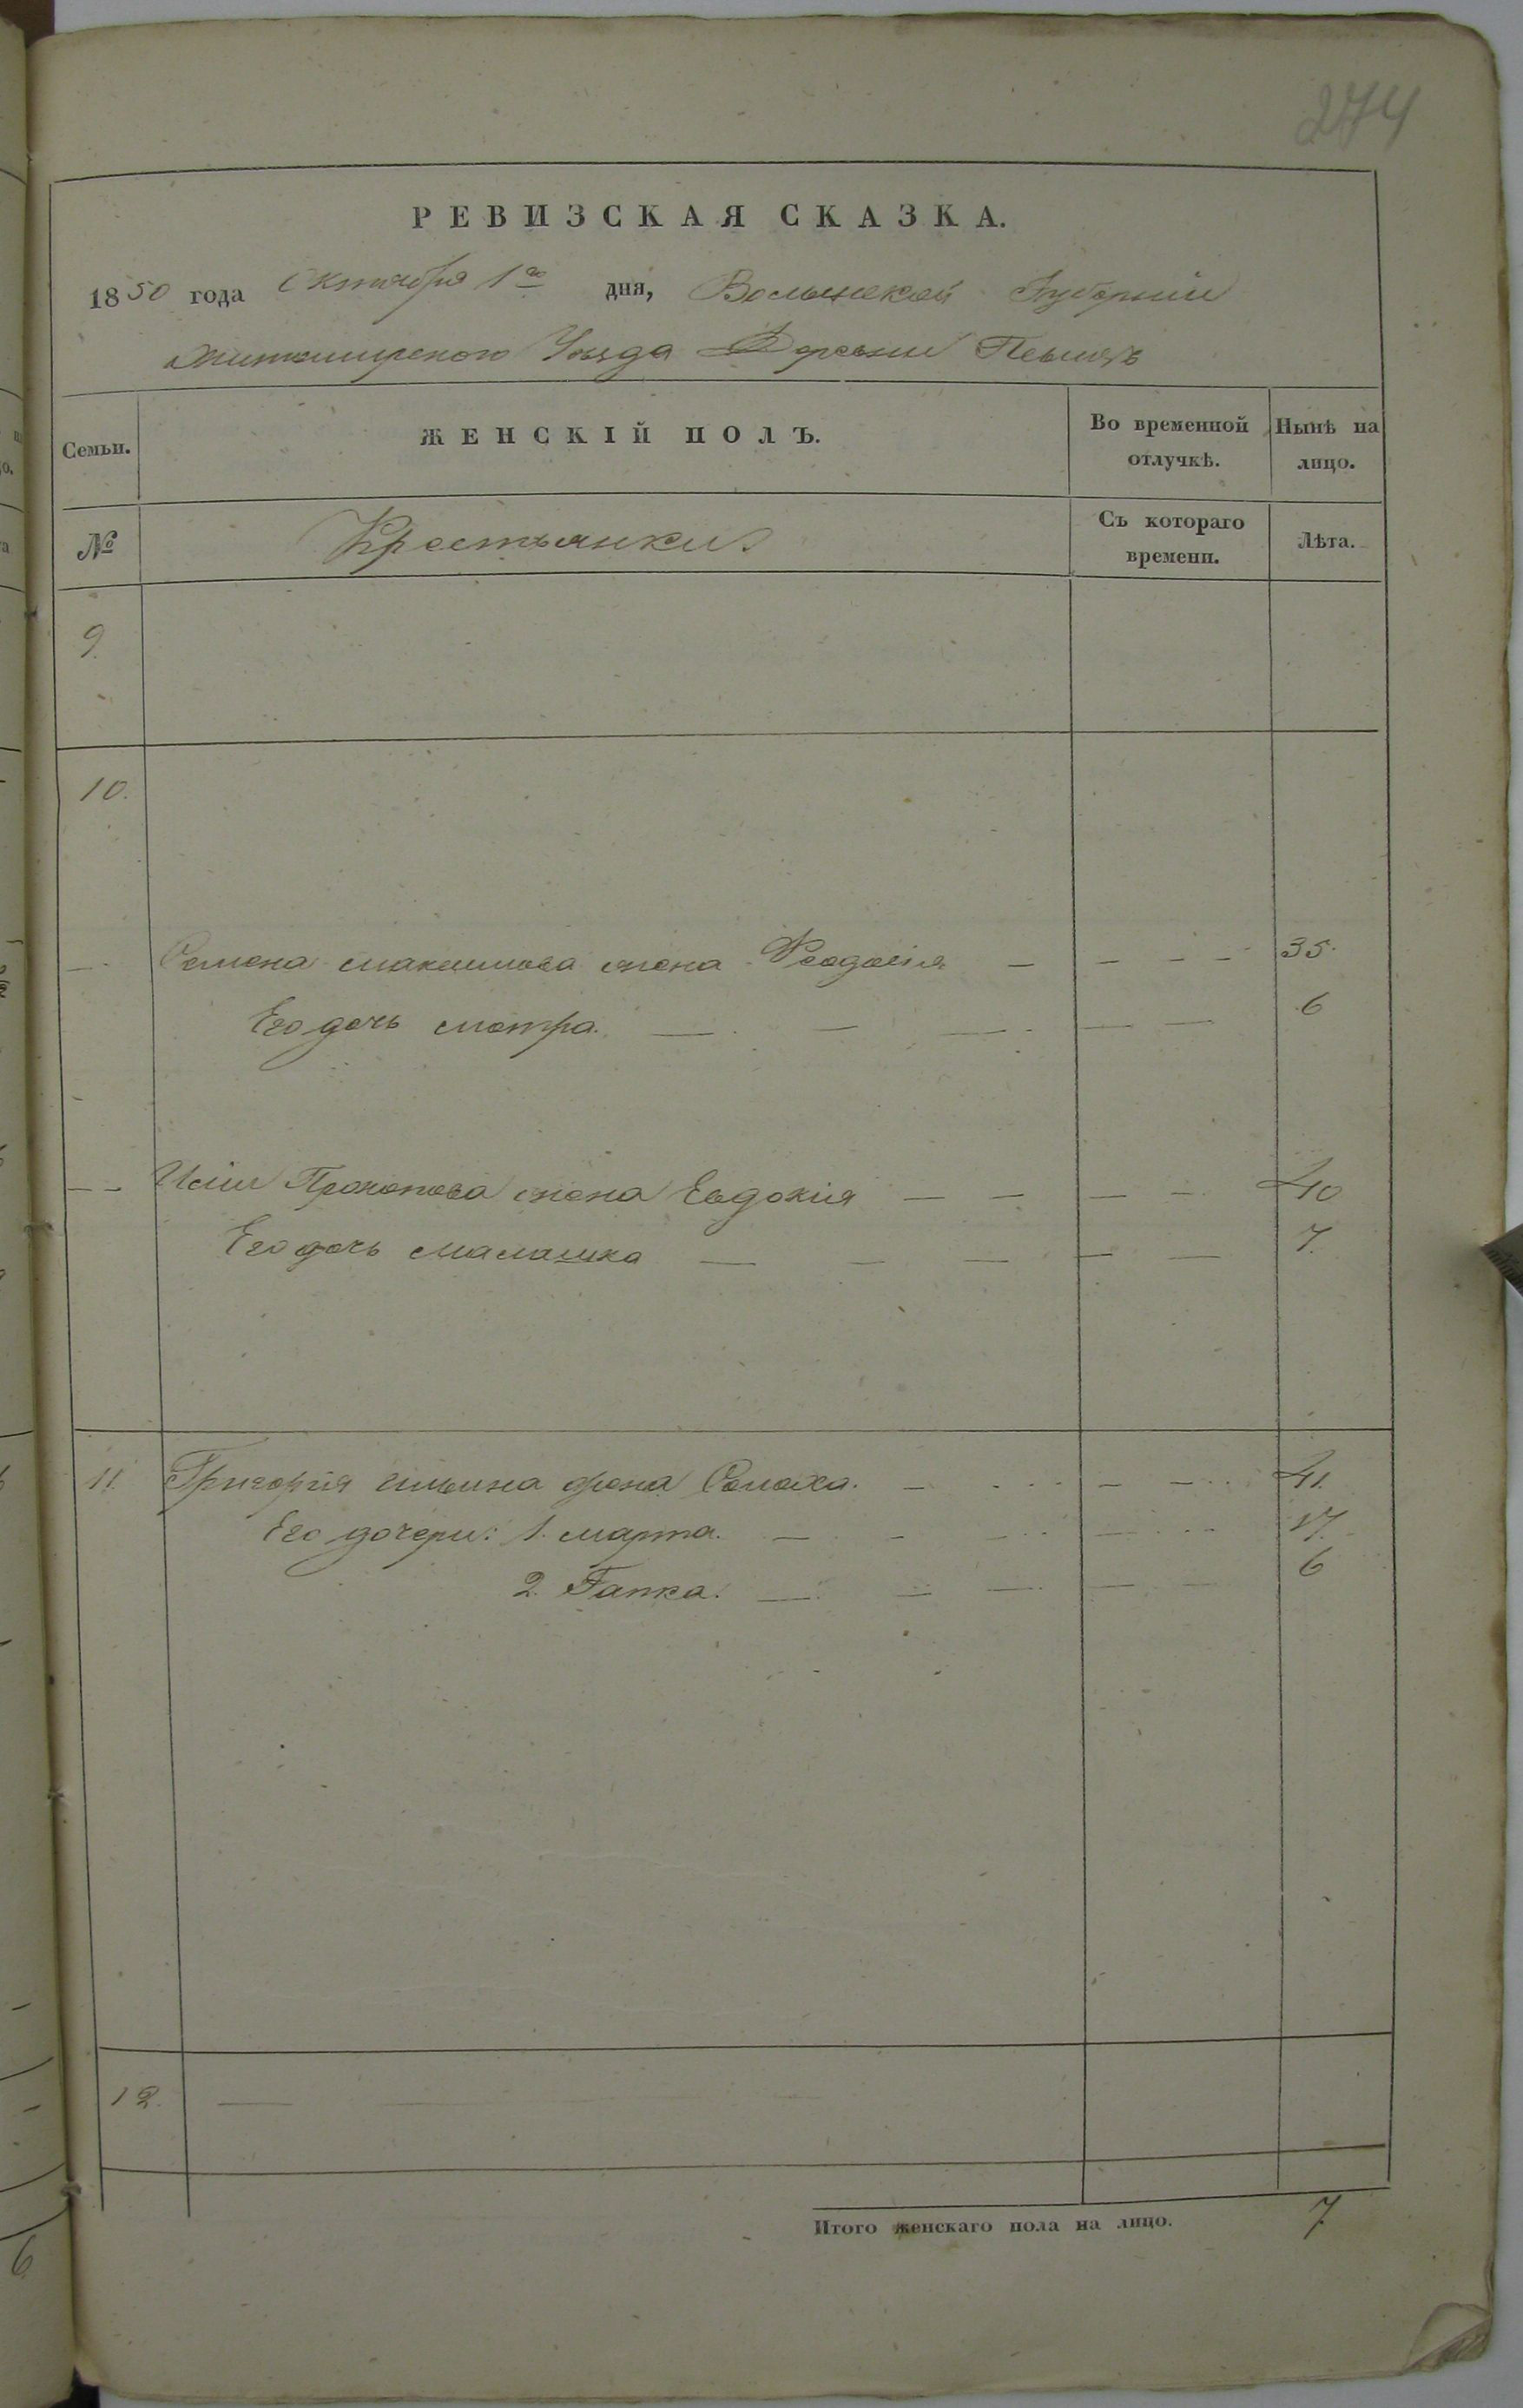 274
РЕВИЗСКАЯ СКАЗКА.
1850 года Октября 1го дня, Волынской Губернии
Житомирского Уезда Деревни
Семьи.
ЖЕНСКІЙ ПОЛЪ.
Во временной отлучкѣ.
Нынѣ на лицо.
№
Крестьянки
Съ котораго времени.
Лѣта.
9.
10.
Семена Максимова жена Феодосія — — — — 35.
Его дочь Мотра. — — — — — 6
Прокопова жена Евдокія — — — — 40
Его дочь Малашка — — — — — 7.
11. Григорія Ильина жена Солоха. — — — — 41.
Его дочери: 1. Марта. — — — — 17.
2. Гапка. — — — — — 6
12. —
Итого женскаго пола на лицо. 7
6